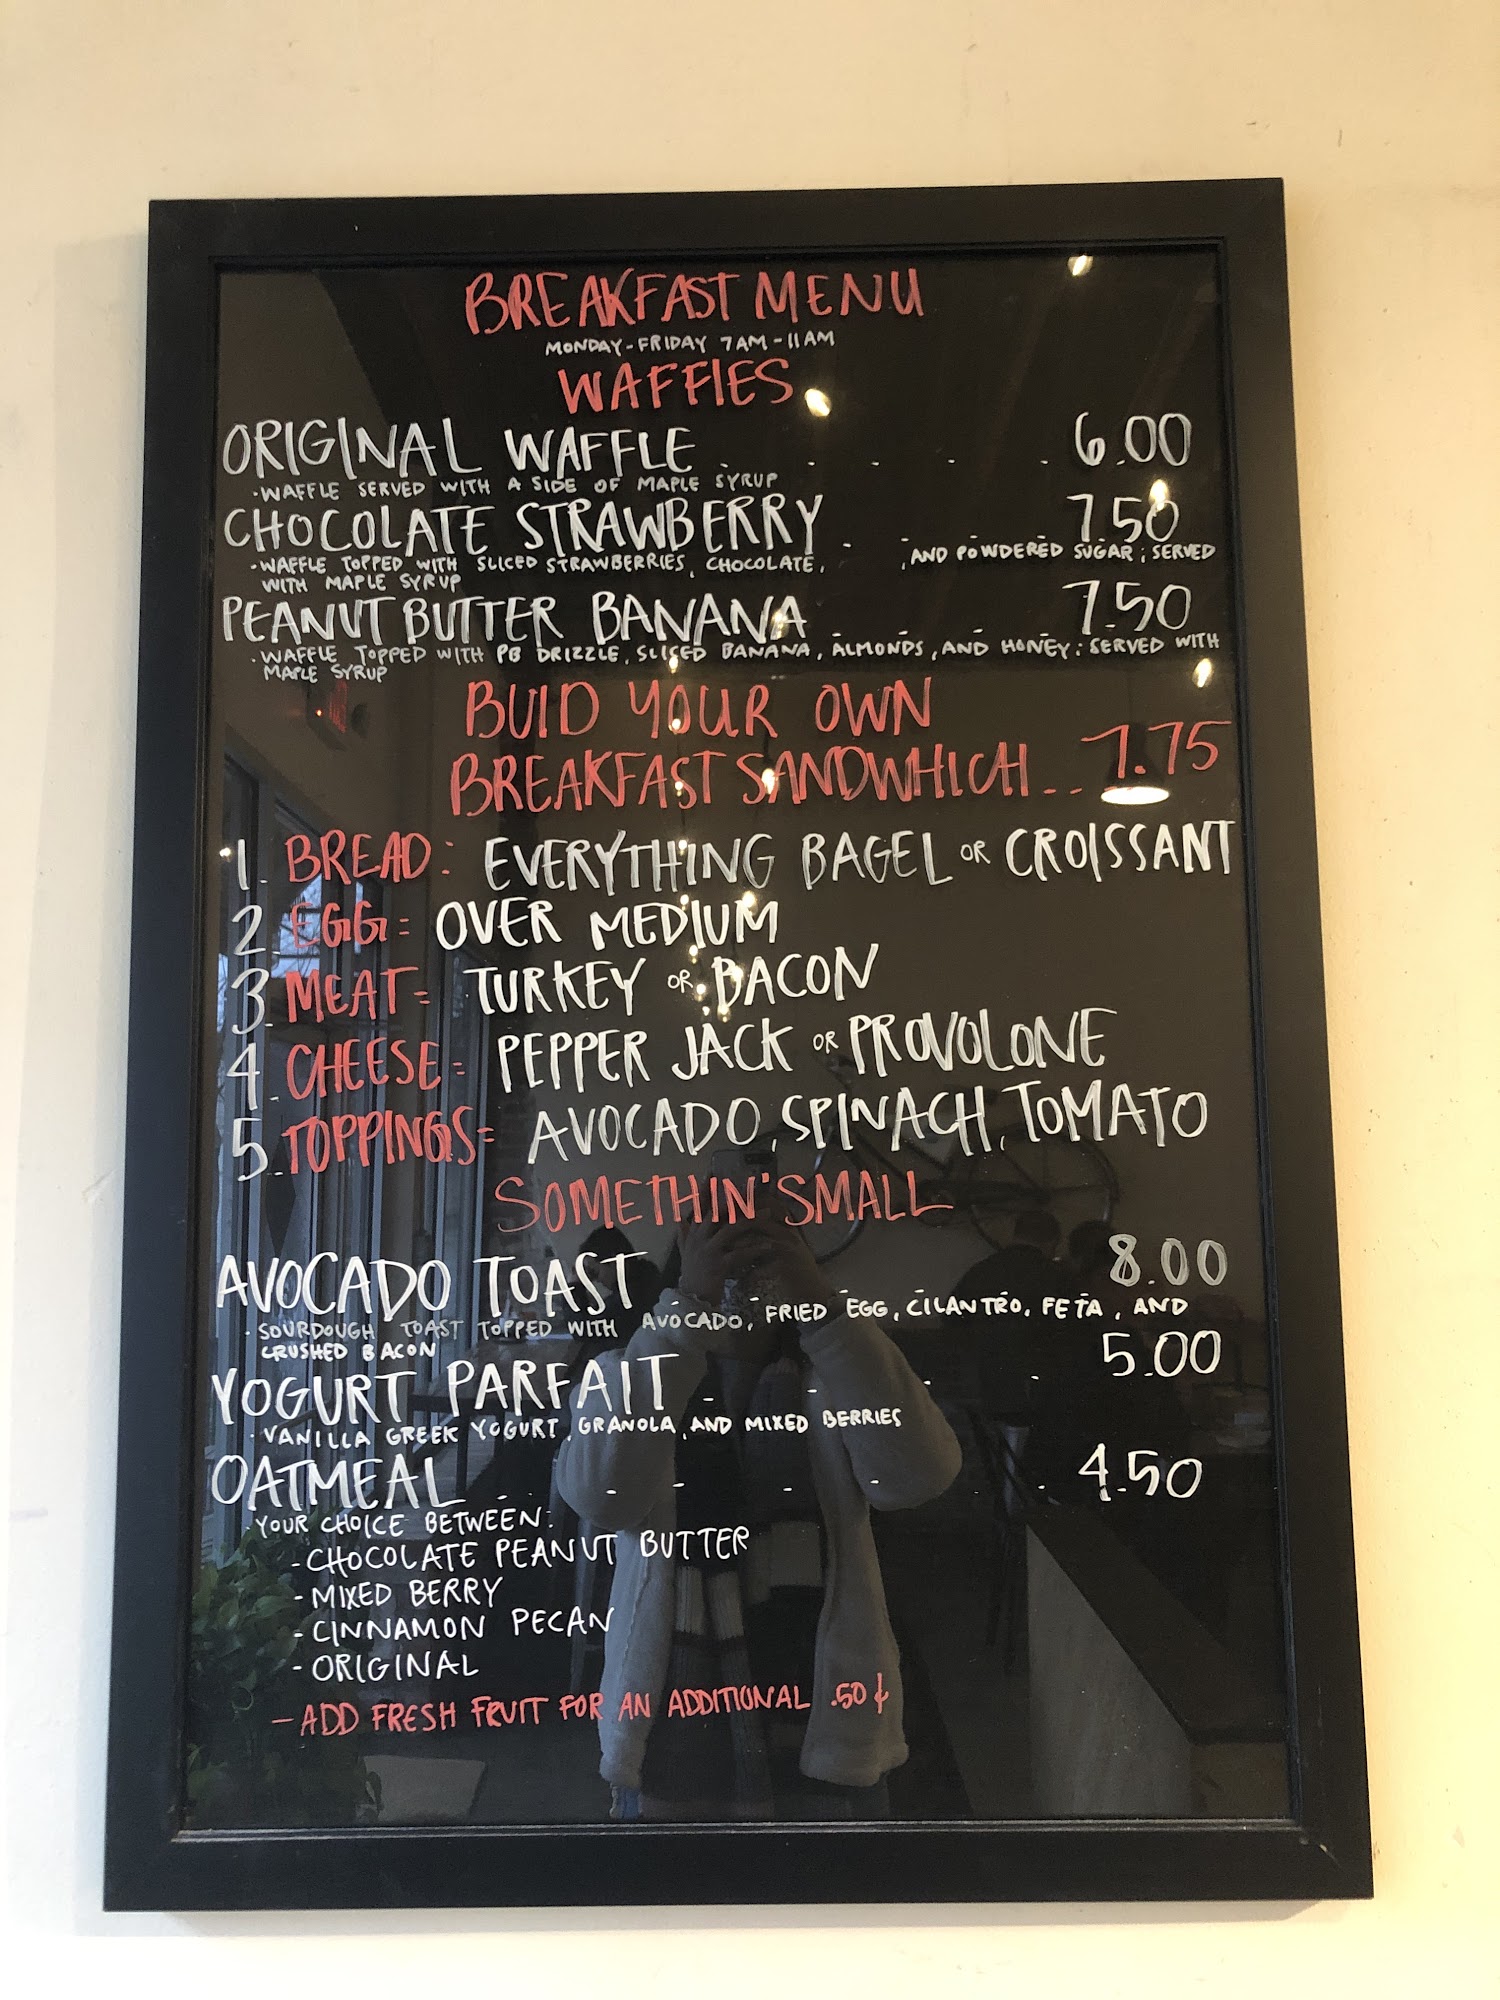 BREAKFAST MENU
MONDAY-FRIDAY 7AM-11AM
WAFFLES
ORIGINAL WAFFLE . . . . . 6.00
·WAFFLE SERVED WITH A SIDE OF MAPLE SYRUP
CHOCOLATE STRAWBERRY . . . . 7.50
·WAFFLE TOPPED WITH SLICED STRAWBERRIES, CHOCOLATE, , AND POWDERED SUGAR; SERVED
WITH MAPLE SYRUP
PEANUT BUTTER BANANA . . . . 7.50
·WAFFLE TOPPED WITH PB DRIZZLE, SLICED BANANA, ALMONDS, AND HONEY: SERVED WITH
MAPLE SYRUP
BUID YOUR OWN
BREAKFAST SANDWHICH . . . 7.75
1. BREAD: EVERYTHING BAGEL OR CROISSANT
2. EGG: OVER MEDIUM
3. MEAT: TURKEY OR BACON
4. CHEESE: PEPPER JACK OR PROVOLONE
5. TOPPINGS: AVOCADO, SPINACH, TOMATO
SOMETHIN' SMALL
AVOCADO TOAST . . . . . . . 8.00
·SOURDOUGH TOAST TOPPED WITH AVOCADO, FRIED EGG, CILANTRO, FETA, AND
CRUSHED BACON
YOGURT PARFAIT . . . . 5.00
·VANILLA GREEK YOGURT, GRANOLA, AND MIXED BERRIES
OATMEAL . . . . . . . 4.50
·YOUR CHOICE BETWEEN:
-CHOCOLATE PEANUT BUTTER
-MIXED BERRY
-CINNAMON PECAN
-ORIGINAL
-ADD FRESH FRUIT FOR AN ADDITIONAL .50¢